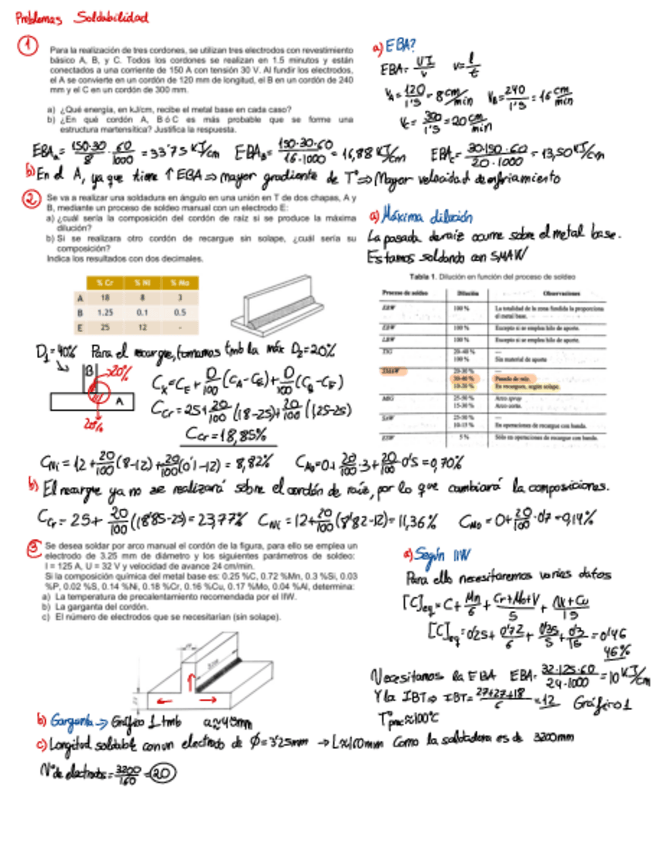 Problemas Soldabilidad
1
Para la realización de tres cordones, se utilizan tres electrodos con revestimiento
básico A, B, y C. Todos los cordones se realizan en 1.5 minutos y están
conectados a una corriente de 150 A con tensión 30 V. Al fundir los electrodos,
el A se convierte en un cordón de 120 mm de longitud, el B en un cordón de 240
mm y el C en un cordón de 300 mm.
a) ¿Qué energía, en kJ/cm, recibe el metal base en cada caso?
b) ¿En qué cordón A, B ó C es más probable que se forme una
estructura martensítica? Justifica la respuesta.
a) EBA?
EBA = UI/v v = l/t
VA = 120/1'5 = 8 cm/min VB = 240/1'5 = 16 cm/min
VC = 300/1'5 = 20 cm/min
EBA_A = 150·30/8 · 60/1000 = 33'75 KJ/cm EBA_B = 150·30·60/16·1000 = 16,88 KJ/cm EBA_C = 30·150·60/20·1000 = 13,50 KJ/cm
b) En el A, ya que tiene ↑EBA ⇒ mayor gradiente de Tª ⇒ Mayor velocidad de enfriamiento
2
Se va a realizar una soldadura en ángulo en una unión en T de dos chapas, A y
B, mediante un proceso de soldeo manual con un electrodo E:
a) ¿cuál sería la composición del cordón de raíz si se produce la máxima
dilución?
b) Si se realizara otro cordón de recargue sin solape, ¿cuál sería su
composición?
Indica los resultados con dos decimales.
a) Máxima dilución
La pasada de raíz ocurre sobre el metal base.
Estamos soldando con SMAW
% Cr % Ni % Mo
A 18 8 3
B 1.25 0.1 0.5
E 25 12 -
Tabla 1. Dilución en función del proceso de soldeo
Proceso de soldeo Dilución Observaciones
100 % La totalidad de la zona fundida la proporciona
el metal base.
EBW 100 % Excepto si se emplea hilo de aporte.
LBW 100 % Excepto si se emplea hilo de aporte.
TIG 20-40 % —
100 % Sin material de aporte
SMAW 20-30 % —
30-40 % Pasada de raíz.
10-20 % En recargues, según solape.
MIG 25-50 % Arco spray
15-30 % Arco corto.
SAW 25-50 % —
10-15 % En operaciones de recargue con banda.
ESW 5 % Sólo en operaciones de recargue con banda.
D1 = 40% Para el recargue, tomamos tmb la máx D2 = 20%
B 20%
A
20%
Cx = CE + D/100 (CA - CE) + D/100 (CB - CE)
Ccr = 25 + 20/100 (18-25) + 20/100 (1,25-25)
Ccr = 18,85%
CNi = 12 + 20/100 (8-12) + 20/100 (0'1-12) = 8,82% CMo = 0 + 20/100 · 3 + 20/100 · 0'5 = 0,70%
b) El recargue ya no se realizará sobre el cordón de raíz, por lo que cambiará la composiciones.
Ccr = 25 + 20/100 (18'85-25) = 23,77% CNi = 12 + 20/100 (8'82-12) = 11,36% CMo = 0 + 20/100 · 0'7 = 0,14%
3
Se desea soldar por arco manual el cordón de la figura, para ello se emplea un
electrodo de 3.25 mm de diámetro y los siguientes parámetros de soldeo:
I = 125 A, U = 32 V y velocidad de avance 24 cm/min.
Si la composición química del metal base es: 0.25 %C, 0.72 %Mn, 0.3 %Si, 0.03
%P, 0.02 %S, 0.14 %Ni, 0.18 %Cr, 0.16 %Cu, 0.17 %Mo, 0.04 %Al, determina:
a) La temperatura de precalentamiento recomendada por el IIW.
b) La garganta del cordón.
c) El número de electrodos que se necesitarían (sin solape).
a) Según IIW
Para ello necesitaremos varios datos
[C]eq = C + Mn/6 + Cr+Mo+V/5 + Ni+Cu/15
[C]eq = 0'25 + 0'72/6 + 0'35/5 + 0'3/15 = 0'46
46%
Necesitamos la EBA EBA = 32·125·60/24·1000 = 10 KJ/cm
Y la IBT ⇒ IBT = 27+27+18/6 = 12 Gráfico 1
Tªprec ≈ 100ºC
b) Garganta → Gráfico 1 tmb
c) Longitud soldable con un electrodo de Ø = 3'25mm → L ≈ 160mm Como la soldadura es de 3200mm
Nº de electrodos = 3200/160 = 20